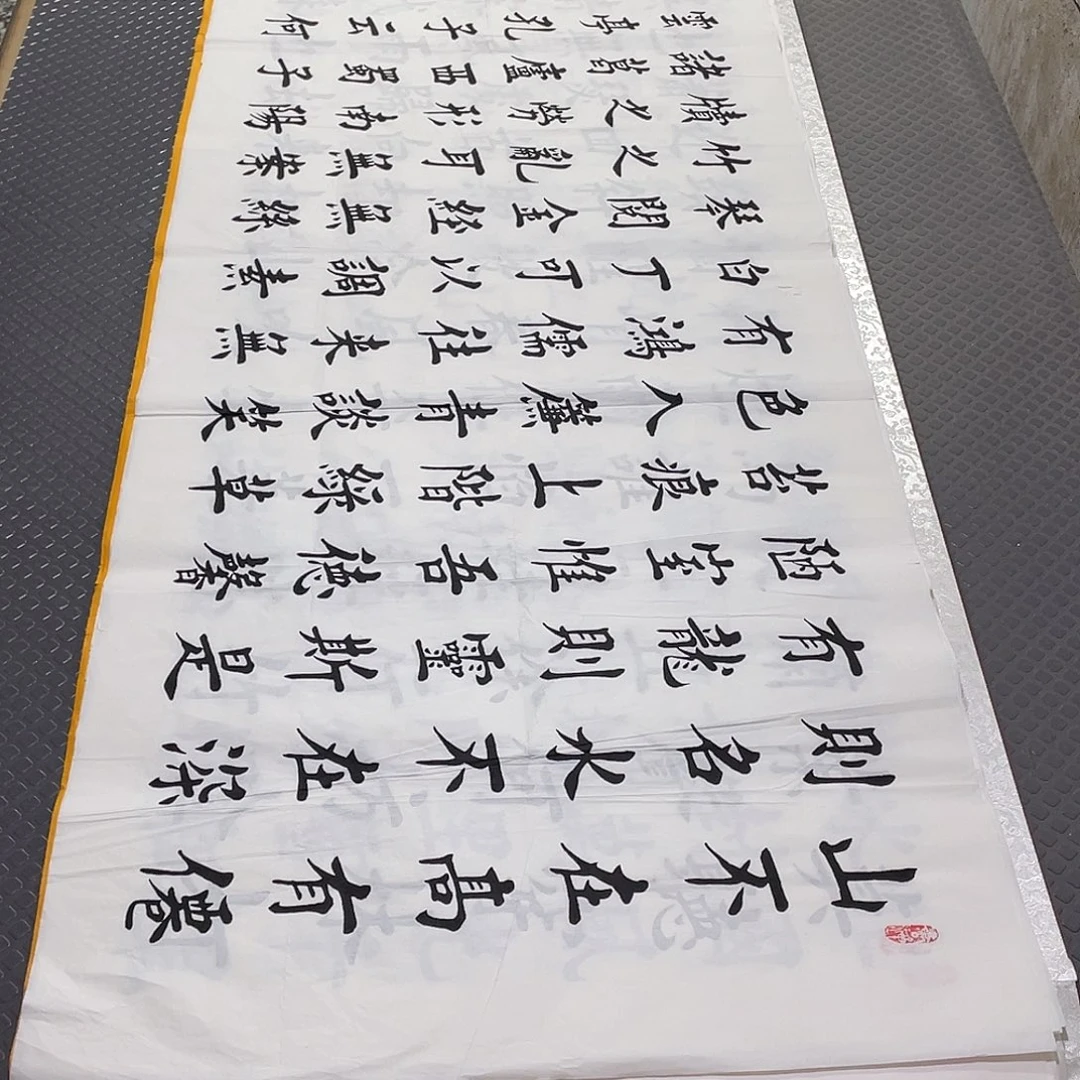 山不在高有僊
則名水不在深
有龍則靈斯是
陋室惟吾德馨
苔痕上階綠草
色入簾青談笑
有鴻儒往来無
白丁可以調素
琴閱金経無絲
竹之亂耳無案
牘之勞形南陽
諸葛廬西蜀子
雲亭孔子云何